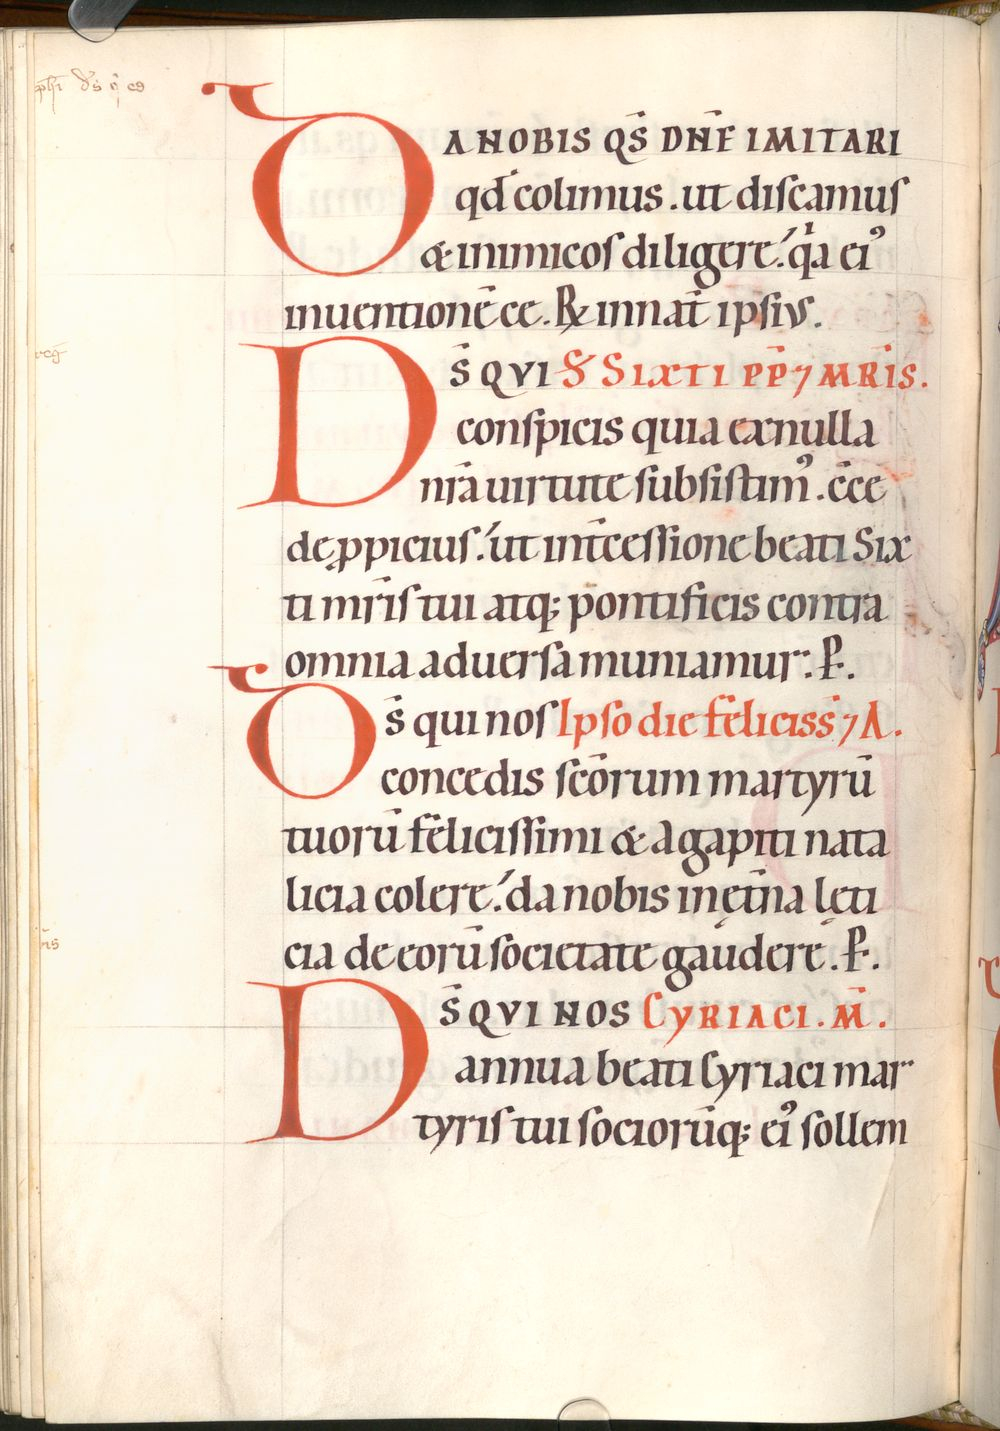 DA NOBIS QS̄ DN̄E IMITARI
qđ colimus . ut discamus
& inimicos diligere. q̇a ei᾿
inuentionē ce. R̷ in nat̄ ipsius.
DS̄ QVI S SIXTI PP̄ ⁊ MR̄IS.
conspicis quia ex nulla
nr̄a uirtute subsistim᾿. c̄ce
de ꝓpicius. ut int̄cessione beati Six
ti mr̄is tui atq; pontificis contra
omnia aduersa muniamur. P.
DS̄ qui nos Ipso die felicis̄s ⁊ A.
concedis sc̄orum martyrū
tuorū felicissimi & Agapiti nata
licia colere. da nobis in et̄na leti
cia de eorū societate gaudere. P.
DS̄ QVI NOS CYRIACI. M̄.
annua beati Cyriaci mar
tyris tui sociorūq; ei᾿ sollem